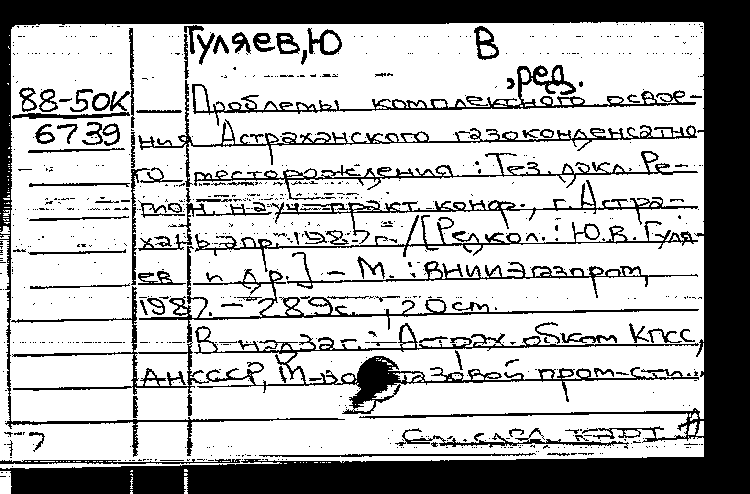 Гуляев, Ю В
, ред.
88-50К
6739
Проблемы комплексного освое-
ния Астраханского газоконденсатно-
го месторождения : Тез. докл. Ре-
гион. науч.-практ. конф., г. Астра-
хань, апр. 1987 г. / [Редкол.: Ю.В. Гуля-
ев и др.] – М. : ВНИИЭгазпром,
1987. – 289с. ; 20 см.
В надзаг.: Астрах. обком КПСС,
АН СССР, М-во газовой пром-сти...
См. след. карт.